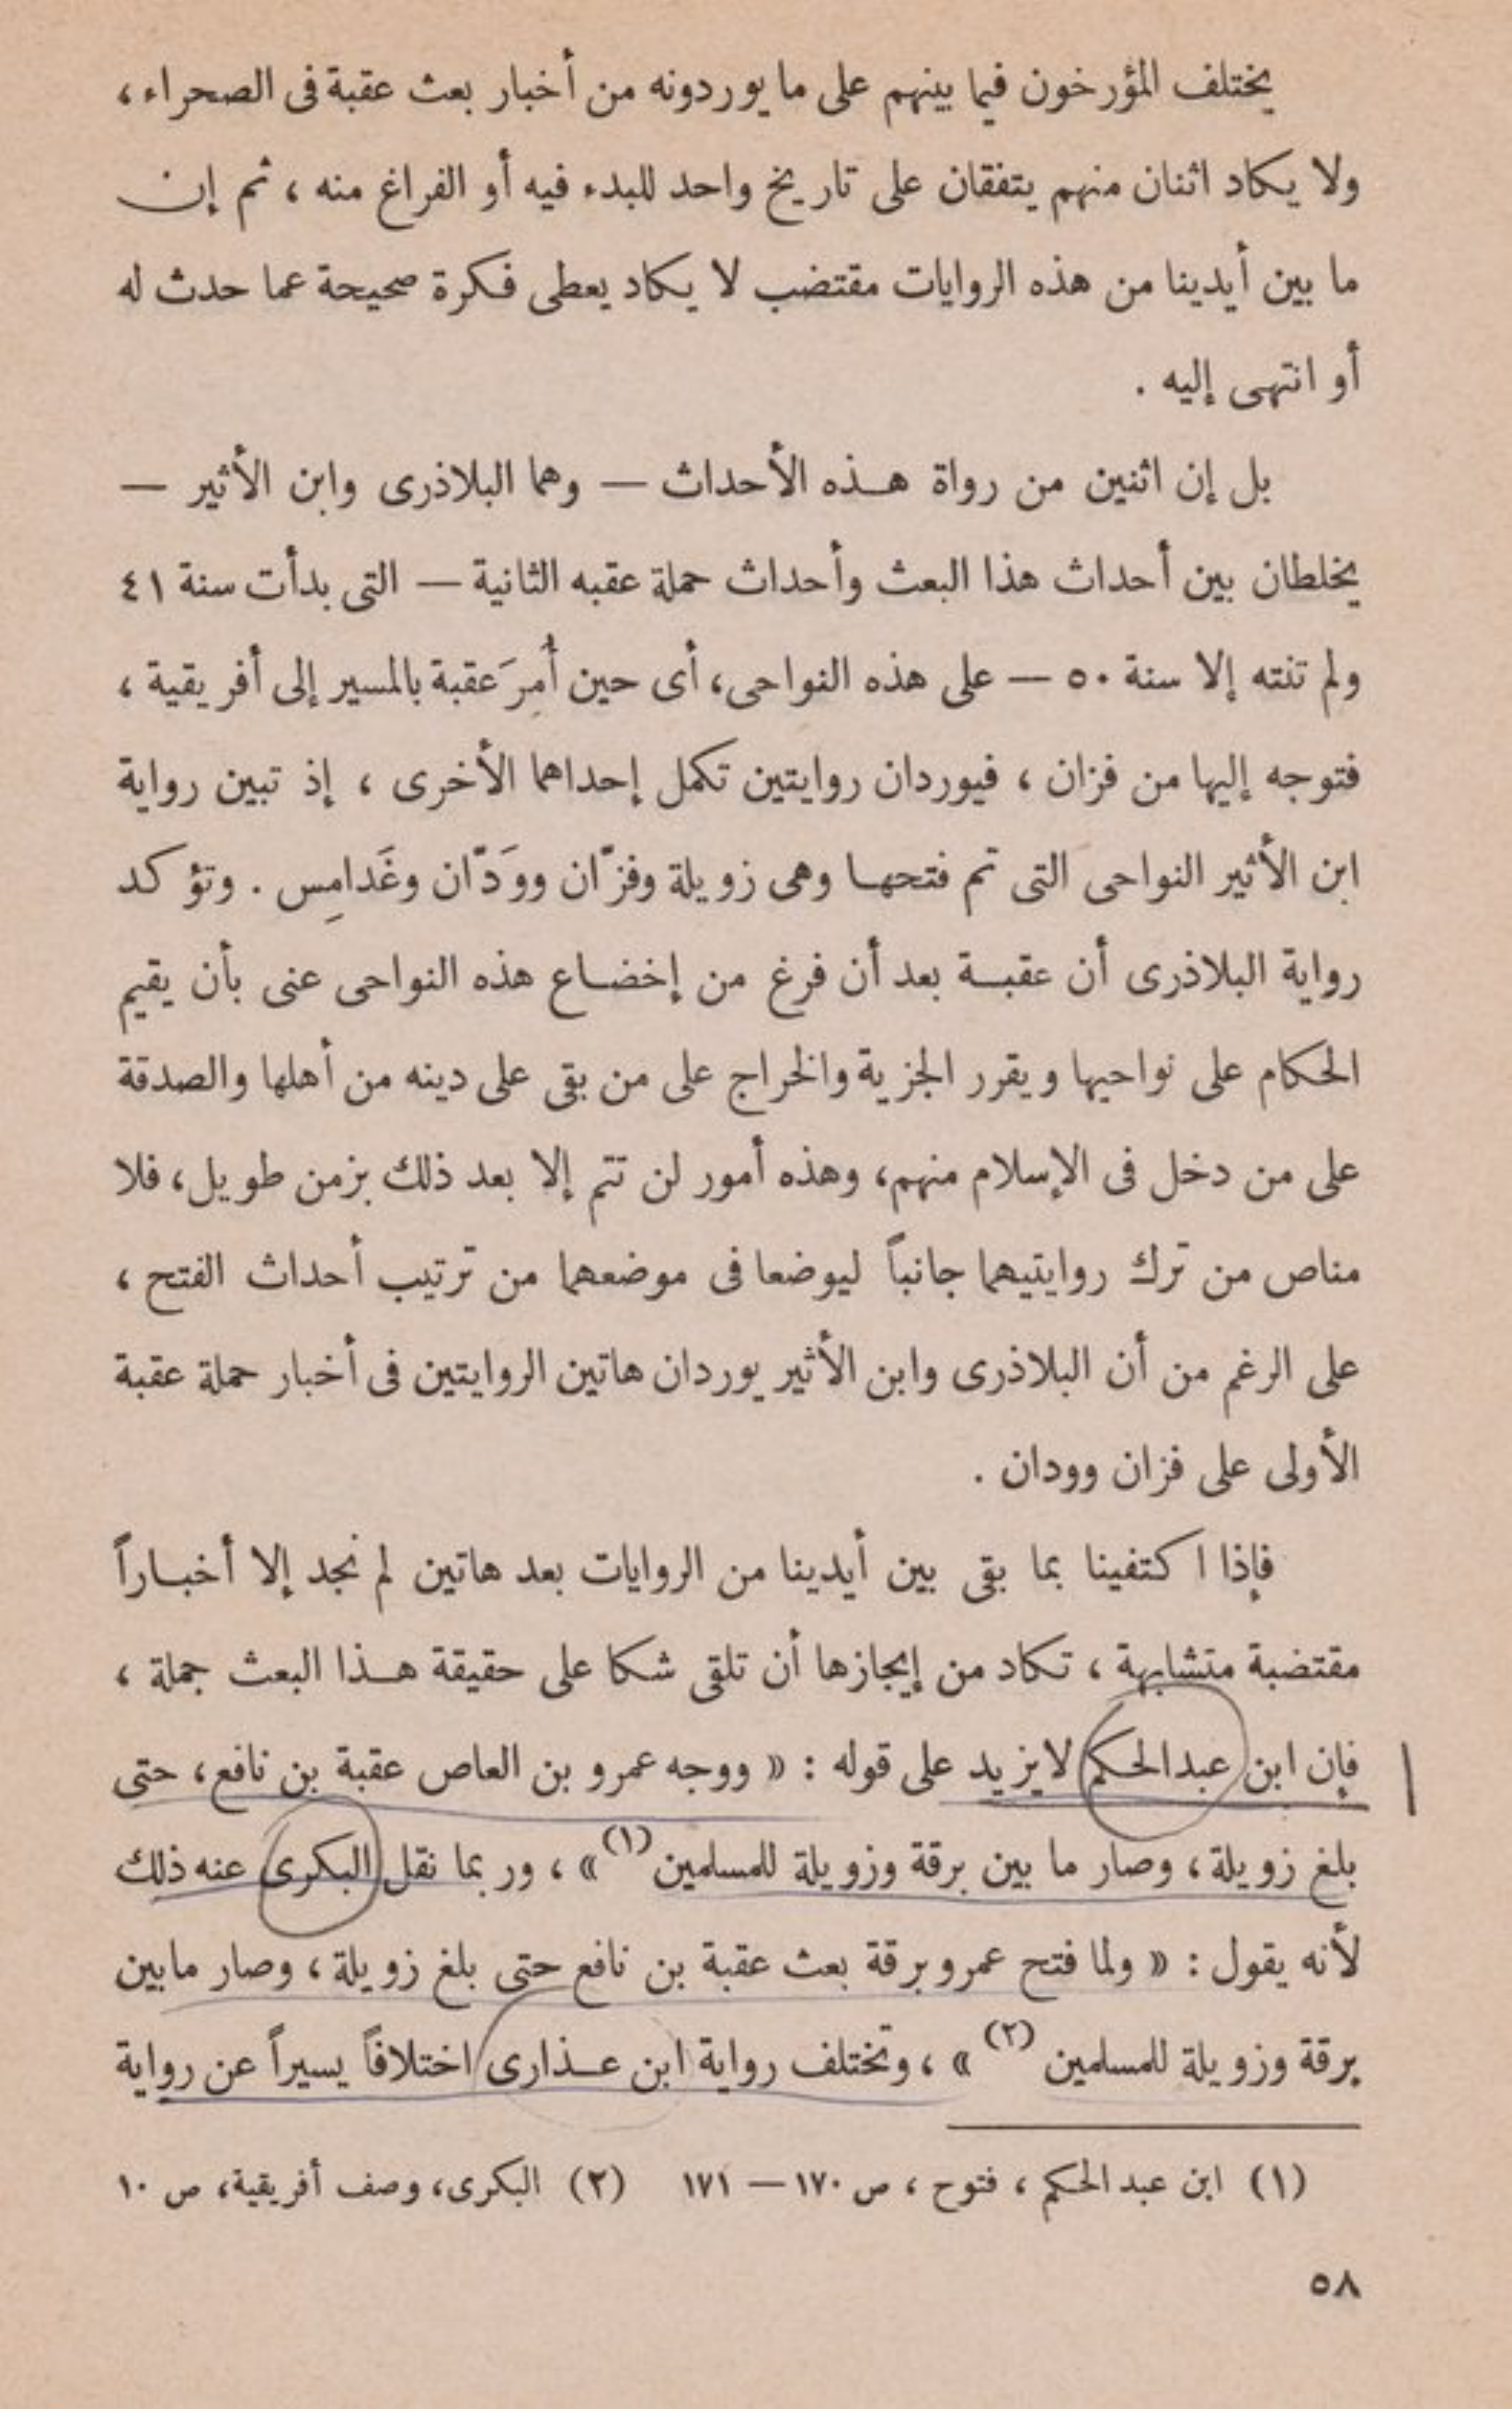 يختلف المؤرخون فيما بينهم على ما يوردونه من أخبار بعث عقبة فى الصحراء ،
ولا يكاد اثنان منهم يتفقان على تاريخ واحد للبدء فيه أو الفراغ منه ، ثم إن
ما بين أيدينا من هذه الروايات مقتضب لا يكاد يعطى فكرة صحيحة عما حدث له
أو انتهى إليه .
بل إن اثنين من رواة هذه الأحداث — وهما البلاذرى وابن الأثير —
يخلطان بين أحداث هذا البعث وأحداث حملة عقبه الثانية — التى بدأت سنة ٤١
ولم تنته إلا سنة ٥٠ — على هذه النواحى، أى حين أُمِرَ عقبة بالمسير إلى أفريقية ،
فتوجه إليها من فزان ، فيوردان روايتين تكمل إحداهما الأخرى ، إذ تبين رواية
ابن الأثير النواحى التى تم فتحها وهى زويلة وفزّان وودَّان وغَدامِس . وتؤكد
رواية البلاذرى أن عقبة بعد أن فرغ من إخضاع هذه النواحى عنى بأن يقيم
الحكام على نواحيها ويقرر الجزية والخراج على من بقى على دينه من أهلها والصدقة
على من دخل فى الإسلام منهم، وهذه أمور لن تتم إلا بعد ذلك بزمن طويل، فلا
مناص من ترك روايتيهما جانباً ليوضعا فى موضعهما من ترتيب أحداث الفتح ،
على الرغم من أن البلاذرى وابن الأثير يوردان هاتين الروايتين فى أخبار حملة عقبة
الأولى على فزان وودان .
فإذا اكتفينا بما بقى بين أيدينا من الروايات بعد هاتين لم نجد إلا أخباراً
مقتضبة متشابهة ، تكاد من إيجازها أن تلقى شكا على حقيقة هذا البعث جملة ،
فإن ابن عبد الحكم لا يزيد على قوله : « ووجه عمرو بن العاص عقبة بن نافع، حتى
بلغ زويلة، وصار ما بين برقة وزويلة للمسلمين (١) » ، وربما نقل البكرى عنه ذلك
لأنه يقول : « ولما فتح عمرو برقة بعث عقبة بن نافع حتى بلغ زويلة ، وصار ما بين
برقة وزويلة للمسلمين (٢) » ، وتختلف رواية ابن عذارى اختلافاً يسيراً عن رواية
(١) ابن عبد الحكم ، فتوح ، ص ١٧٠ — ١٧١ (٢) البكرى، وصف أفريقية، ص ١٠
٥٨